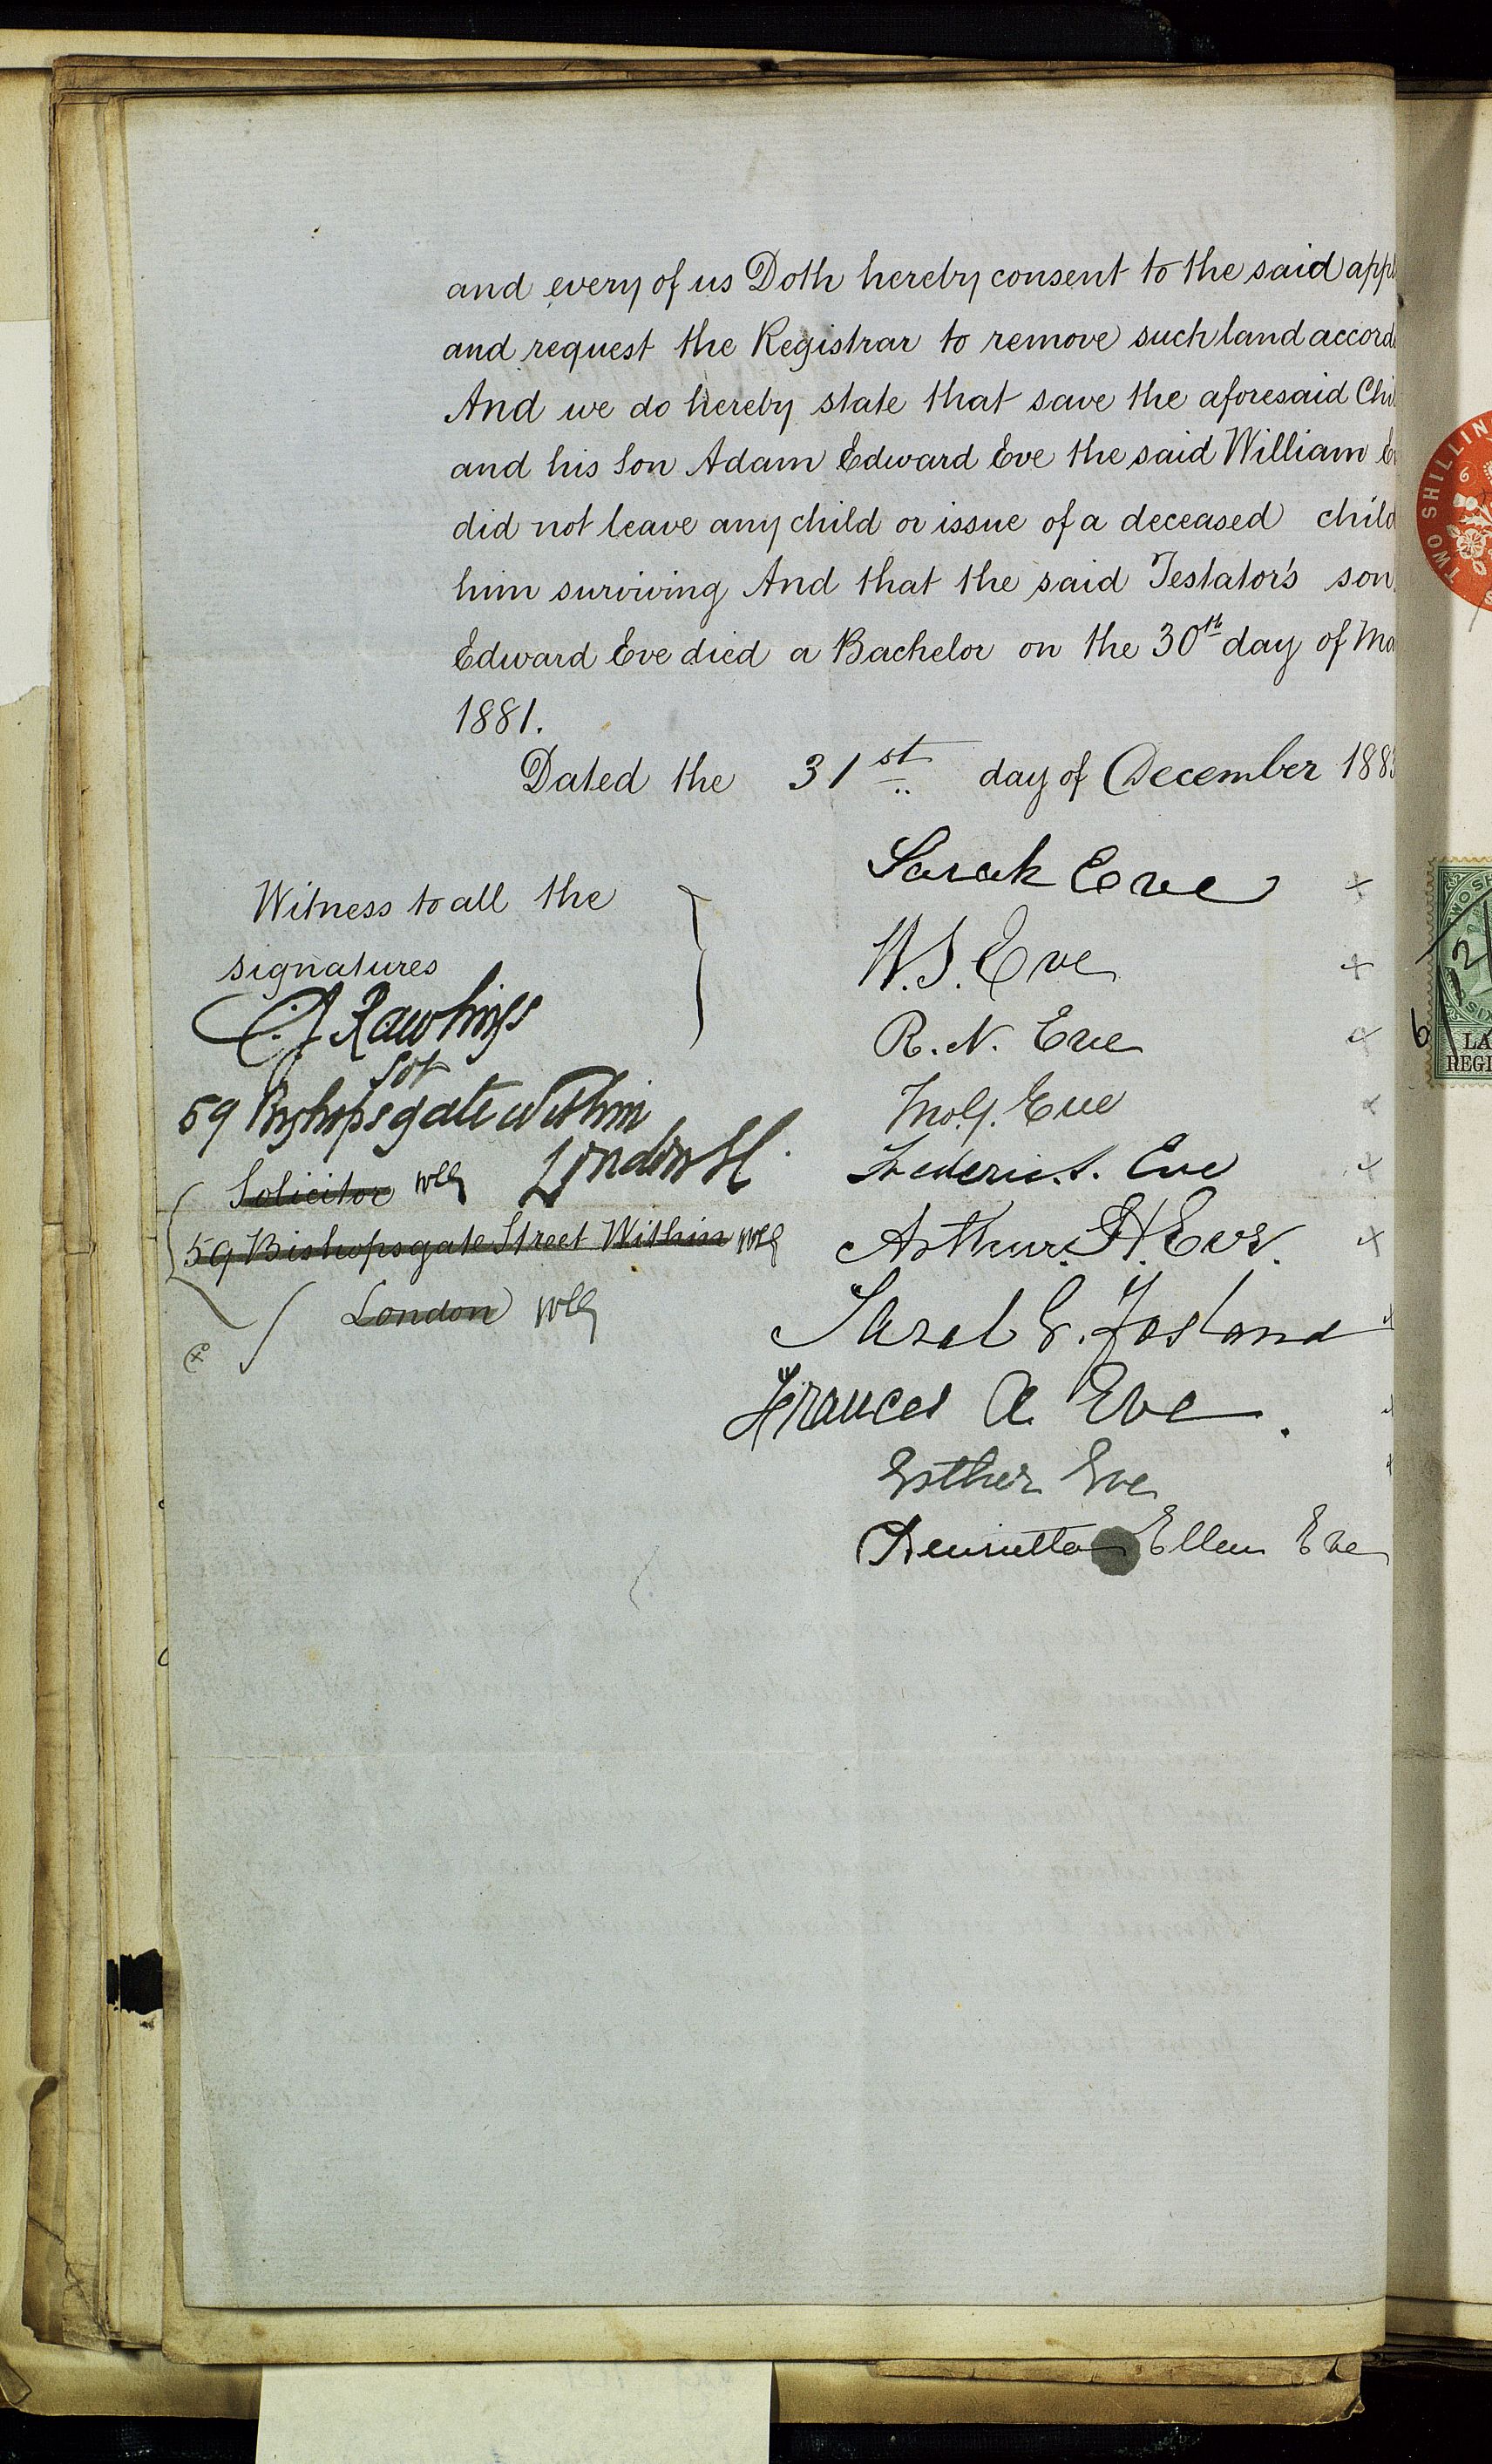 and every of us Doth hereby consent to the said appl
and request the Registrar to remove such land accord
And we do hereby state that save the aforesaid Chil
and his Son Adam Edward Eve the said William E
did not leave any child or issue of a deceased child
him surviving And that the said Testator's son
Edward Eve died a Bachelor on the 30th day of Ma
1881.
Dated the 31st day of December 188
Witness to all the
signatures
Rawlings
Sol
59 Bishopsgate Within
London
Solicitor
59 Bishopsgate Street Within
London
Sarah Eve
W.S. Eve
R. N. Eve
Eve
Frederic. S. Eve
Arthur. H. Eve.
Sarah E.
Frances A Eve.
Esther Eve
Henrietta Ellen Eve
TWO SHILLIN
6
12
LA
REGI